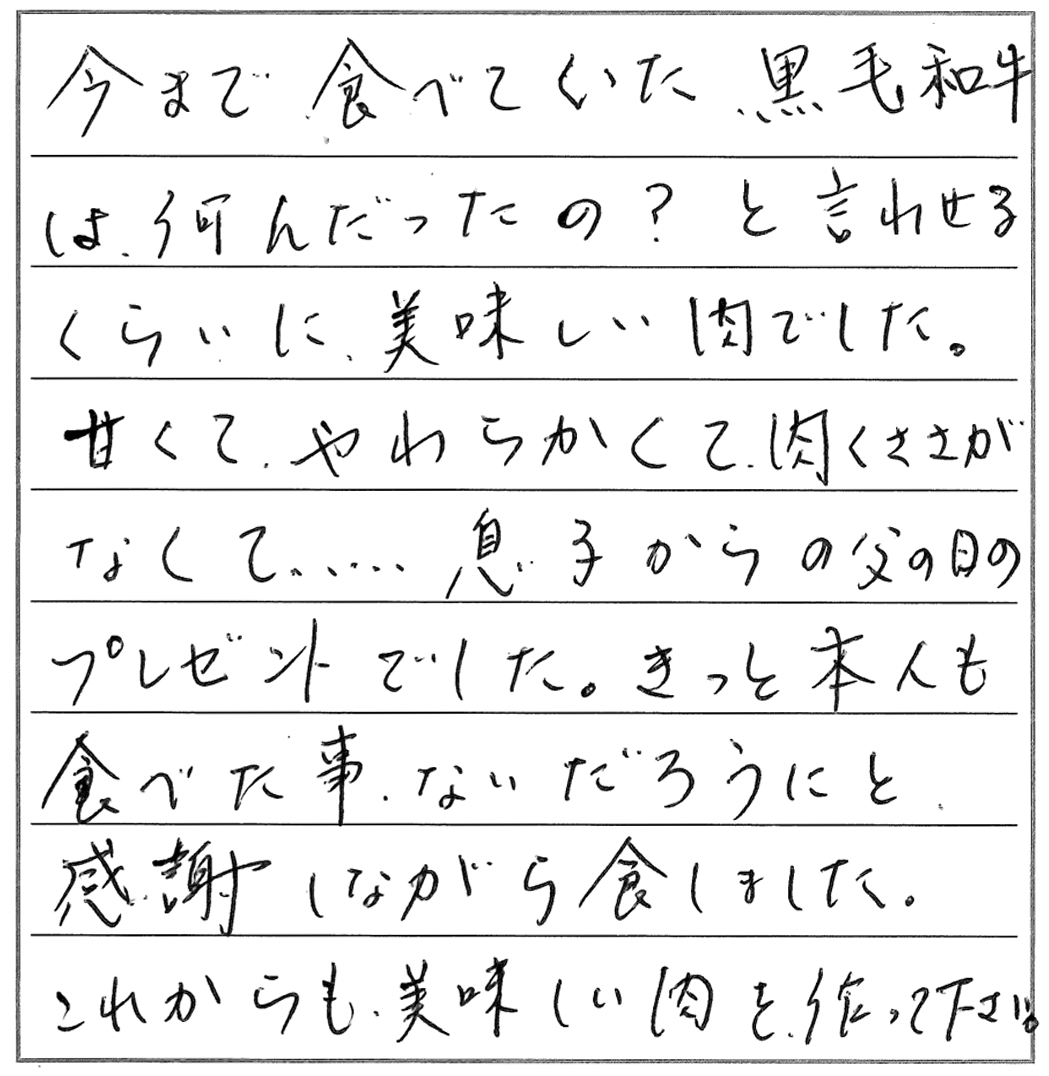 今まで食べていた、黒毛和牛
は、何んだったの？と言わせる
くらいに、美味しい肉でした。
甘くて、やわらかくて、肉くささが
なくて、……息子からの父の日の
プレゼントでした。きっと本人も
食べた事、ないだろうにと、
感謝しながら食しました。
これからも、美味しい肉を、作って下さい。